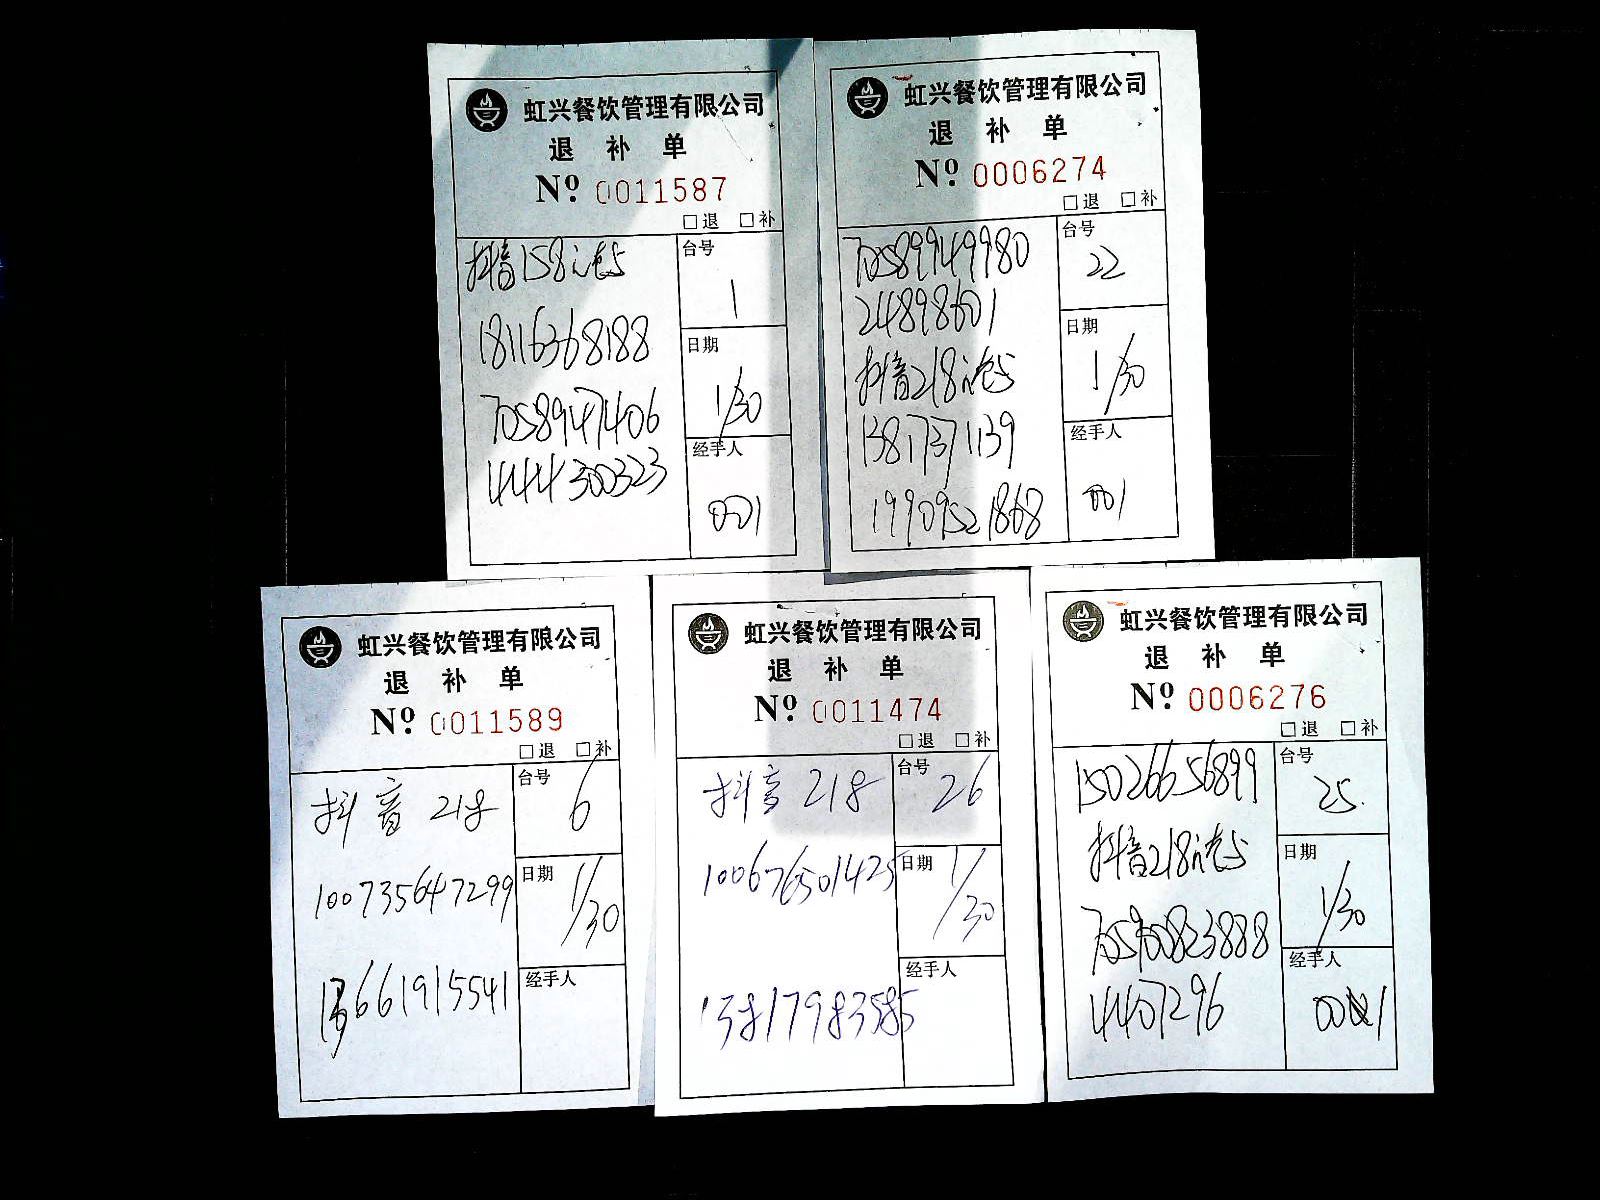 虹兴餐饮管理有限公司
退 补 单
Nº 0011587
□退 □补
抖音158元套
18116368188
70589147406
444300323
台号
1
日期
1/30
经手人
001
虹兴餐饮管理有限公司
退 补 单
Nº 0006274
□退 □补
705899149980
24898601
抖音218元套
13817371139
19909521868
台号
22
日期
1/30
经手人
001
虹兴餐饮管理有限公司
退 补 单
Nº 0011589
□退 □补
抖音 218
100735647299
13661915541
台号
6
日期
1/30
经手人
虹兴餐饮管理有限公司
退 补 单
Nº 0011474
□退 □补
抖音 218
100676501425
13817983585
台号
26
日期
1/30
经手人
虹兴餐饮管理有限公司
退 补 单
Nº 0006276
□退 □补
15026656899
抖音218元套
705900823888
4407296
台号
25.
日期
1/30
经手人
001